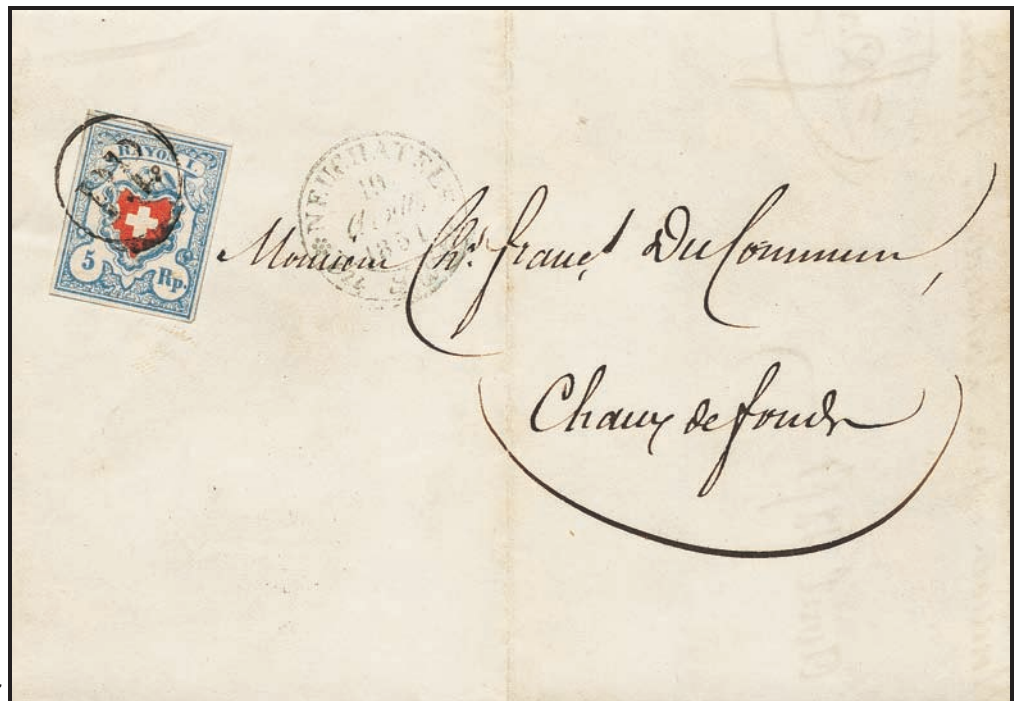 RAYON I.
5 Rp.
NEUCHATEL
1851
Monsieur Chs. franç. DuCommun,
Chaux de fonds